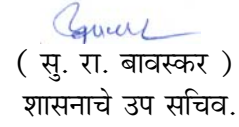 ( सु. रा. बावस्कर )
शासनाचे उप सचिव.